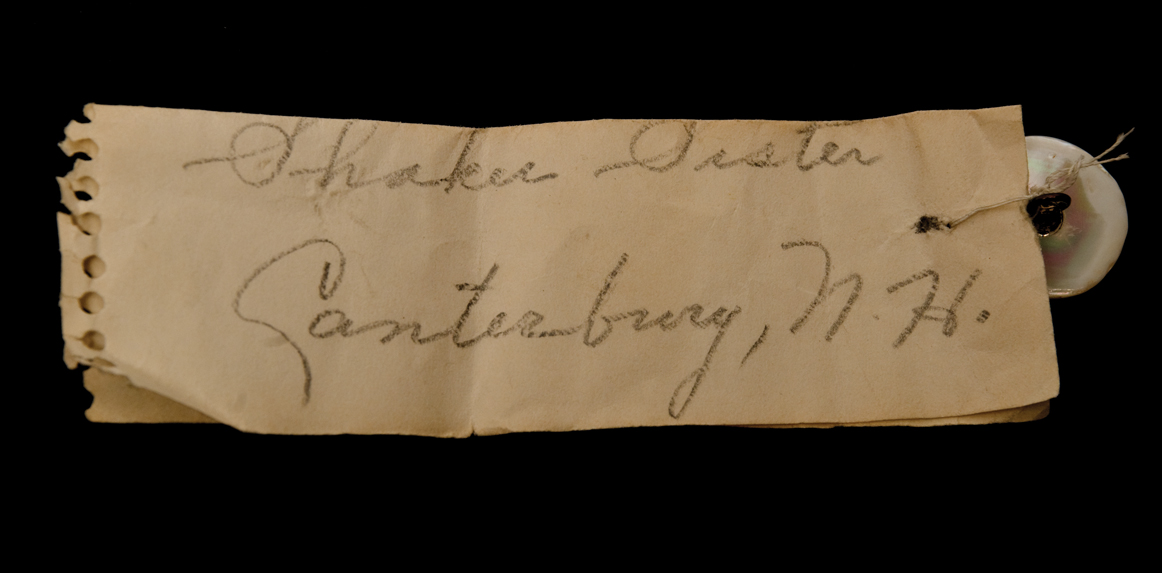 Shaker Sister
Canterbury, N.H.